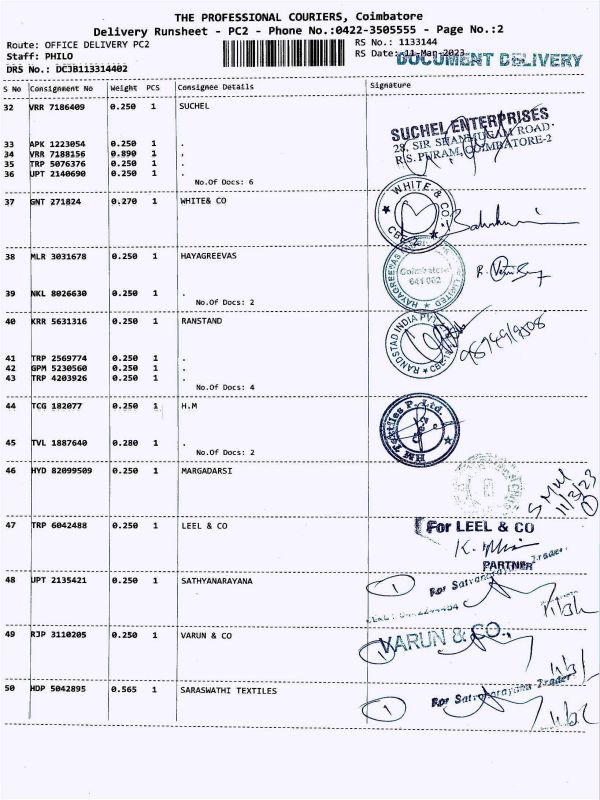 THE PROFESSIONAL COURIERS, Coimbatore
Delivery Runsheet - PC2 - Phone No.:0422-3505555 - Page No.:2
Route: OFFICE DELIVERY PC2
RS No.: 1133144
Staff: PHILO
RS Date: 11-Mar-2023
DOCUMENT DELIVERY
DRS No.: DCJB113314402
S No Consignment No Weight PCS Consignee Details Signature
32 VRR 7186409 0.250 1 SUCHEL
SUCHEL ENTERPRISES
28, SIR SHANMUGAM ROAD
R.S. PURAM, COIMBATORE-2
33 APK 1223054 0.250 1 .
34 VRR 7188156 0.890 1 .
35 TRP 5076376 0.250 1 .
36 UPT 2140690 0.250 1 .
No.Of Docs: 6
37 GNT 271824 0.270 1 WHITE& CO
WHITE & CO
CBE-2
38 MLR 3031678 0.250 1 HAYAGREEVAS
HAYAGREEVAS LIMITED
Coimbatore
641 002
39 NKL 8026630 0.250 1 .
No.Of Docs: 2
40 KRR 5631316 0.250 1 RANSTAND
RANDSTAD INDIA PVT
CBE-1
41 TRP 2569774 0.250 1 .
42 GPM 5230560 0.250 1 .
43 TRP 4203926 0.250 1 .
No.Of Docs: 4
44 TCG 182077 0.250 1 H.M
HM Textiles P. Ltd.
45 TVL 1887640 0.280 1 .
No.Of Docs: 2
46 HYD 82099509 0.250 1 MARGADARSI
11/3/23
1
47 TRP 6042488 0.250 1 LEEL & CO
For LEEL & CO
PARTNER
48 UPT 2135421 0.250 1 SATHYANARAYANA
1
49 RJP 3110205 0.250 1 VARUN & CO
VARUN & CO.,
1
50 HDP 5042895 0.565 1 SARASWATHI TEXTILES
1
For Satyanarayana Trader